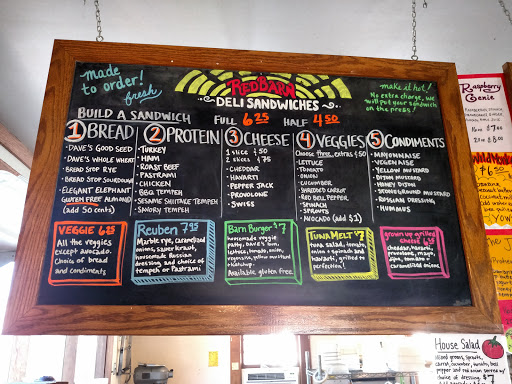 made to order!
fresh
RED BARN
DELI SANDWICHES
make it hot!
No extra charge, we
will put your sandwich
on the press!
BUILD A SANDWICH FULL 6.25 HALF 4.50
1 BREAD
• DAVE'S GOOD SEED
• DAVE'S WHOLE WHEAT
• BREAD STOP RYE
• BREAD STOP SOURDOUGH
• ELEGANT ELEPHANT
GLUTEN FREE ALMOND
(add 50 cents)
2 PROTEIN
• TURKEY
• HAM
• ROAST BEEF
• PASTRAMI
• CHICKEN
• BBQ TEMPEH
• SESAME SHIITAKE TEMPEH
• SAVORY TEMPEH
3 CHEESE
1 slice $.50
2 slices $.75
• CHEDDAR
• HAVARTI
• PEPPER JACK
• PROVOLONE
• SWISS
4 VEGGIES
Choose three, extras $.50
• LETTUCE
• TOMATO
• ONION
• CUCUMBER
• SHREDDED CARROT
• RED BELL PEPPER
• SPINACH
• SPROUTS
• AVOCADO (add $1)
5 CONDIMENTS
• MAYONNAISE
• VEGENAISE
• YELLOW MUSTARD
• DIJON MUSTARD
• HONEY DIJON
• STONE GROUND MUSTARD
• RUSSIAN DRESSING
• HUMMUS
VEGGIE 6.25
All the veggies
except avocado.
Choice of bread
and condiments
Reuben 7.95
Marble rye, caraway and
onions, sauer kraut,
homemade Russian
dressing and choice of
tempeh or Pastrami
Barn Burger $7
homemade veggie
patty, DAVE'S bun,
spinach, tomato, onion,
vegenaise, yellow mustard
+ ketchup.
Available gluten free.
TUNA MELT $7
tuna salad, tomato,
onion + spinach and
havarti, grilled to
perfection!
grown up grilled
cheese
cheddar, havarti,
provolone, mayo,
dijon, tomato +
caramelized onion
Raspberry
Genie
16oz $7.00
House Salad
mixed greens, sprouts,
carrot, cucumber, tomato, bell
pepper and red onion served w/
choice of dressing. $7